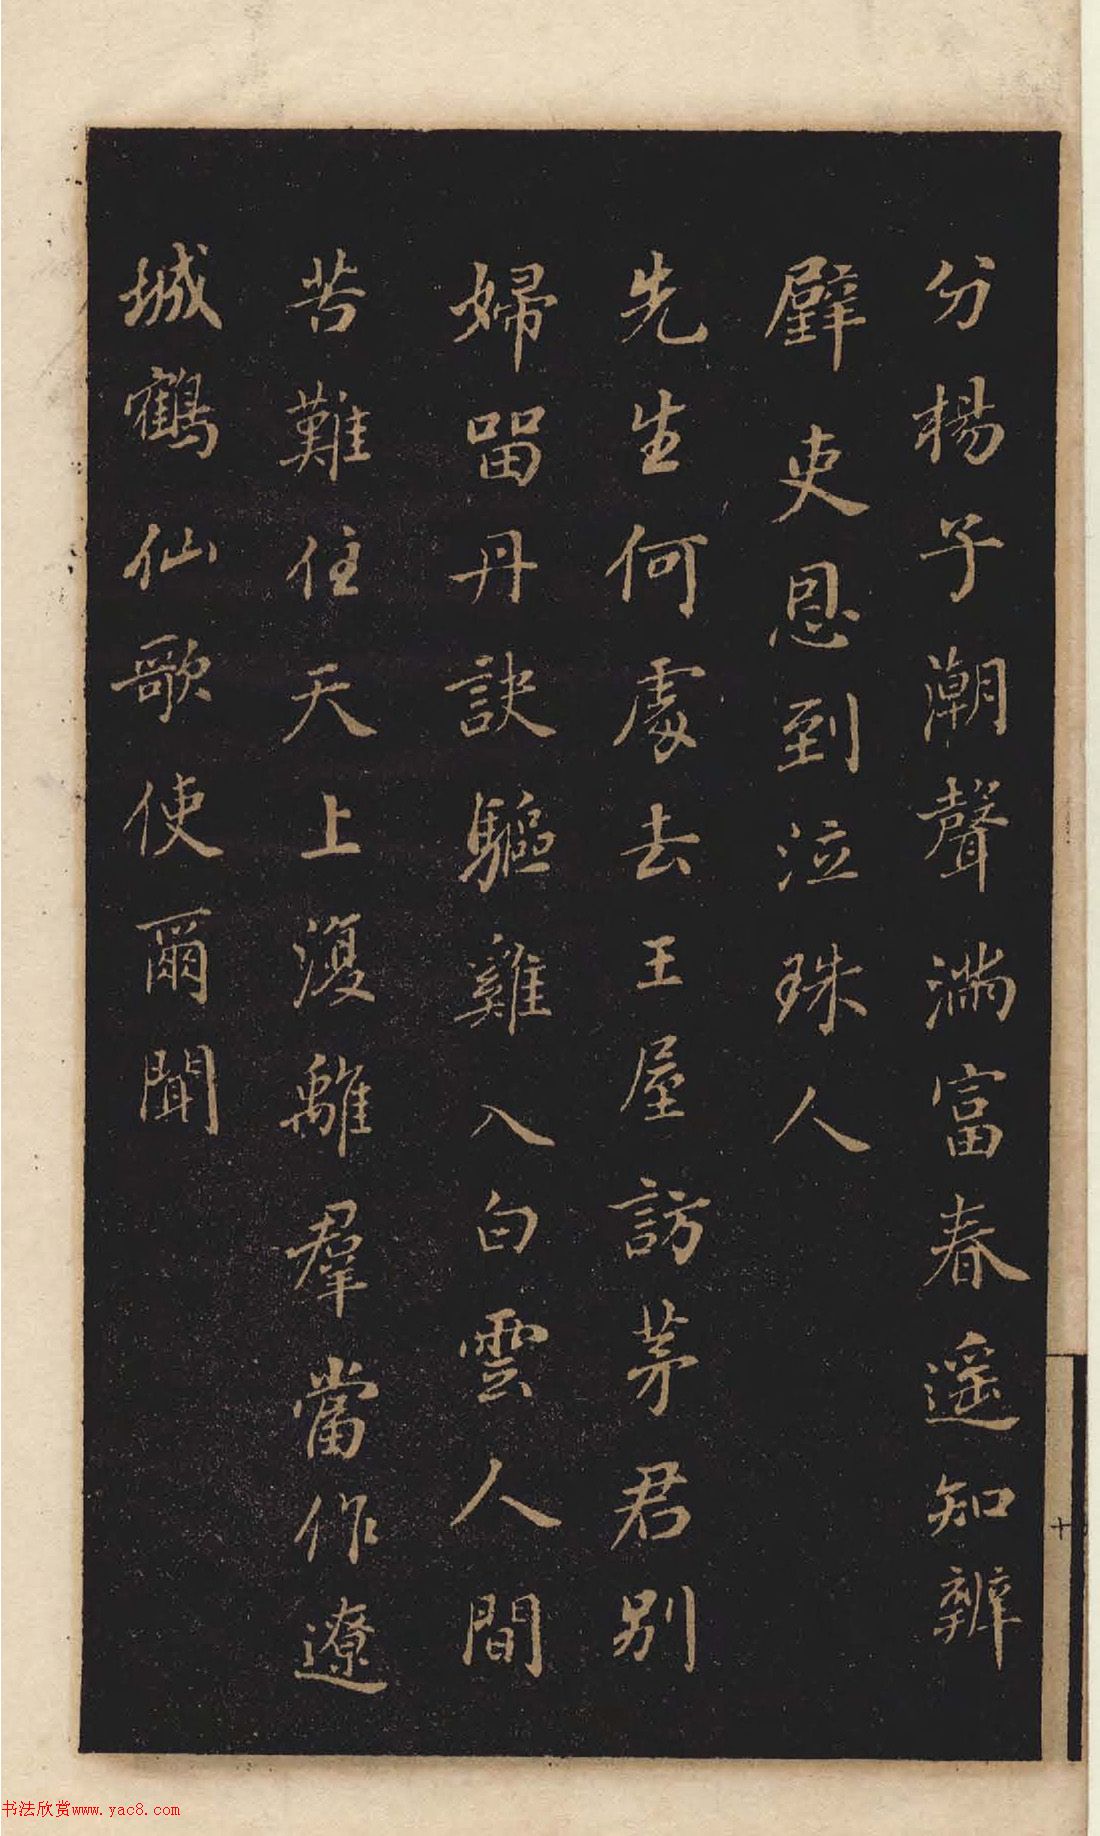 分楊子潮聲滿富春遥知辨
璧吏恩到泣珠人
先生何處去王屋訪茅君别
婦留丹訣驅雞入白雲人間
苦難住天上復離羣當作遼
城鶴仙歌使爾聞
十
书法欣赏www.yac8.com